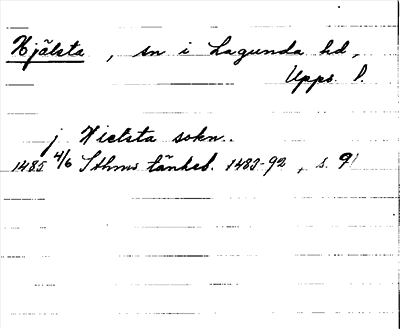 Hjälsta, sn i Lagunda hd,
Upps. l.
j Hielsta sokn.
1485 4/6 Sthms tänkeb. 1483-92, s. 91